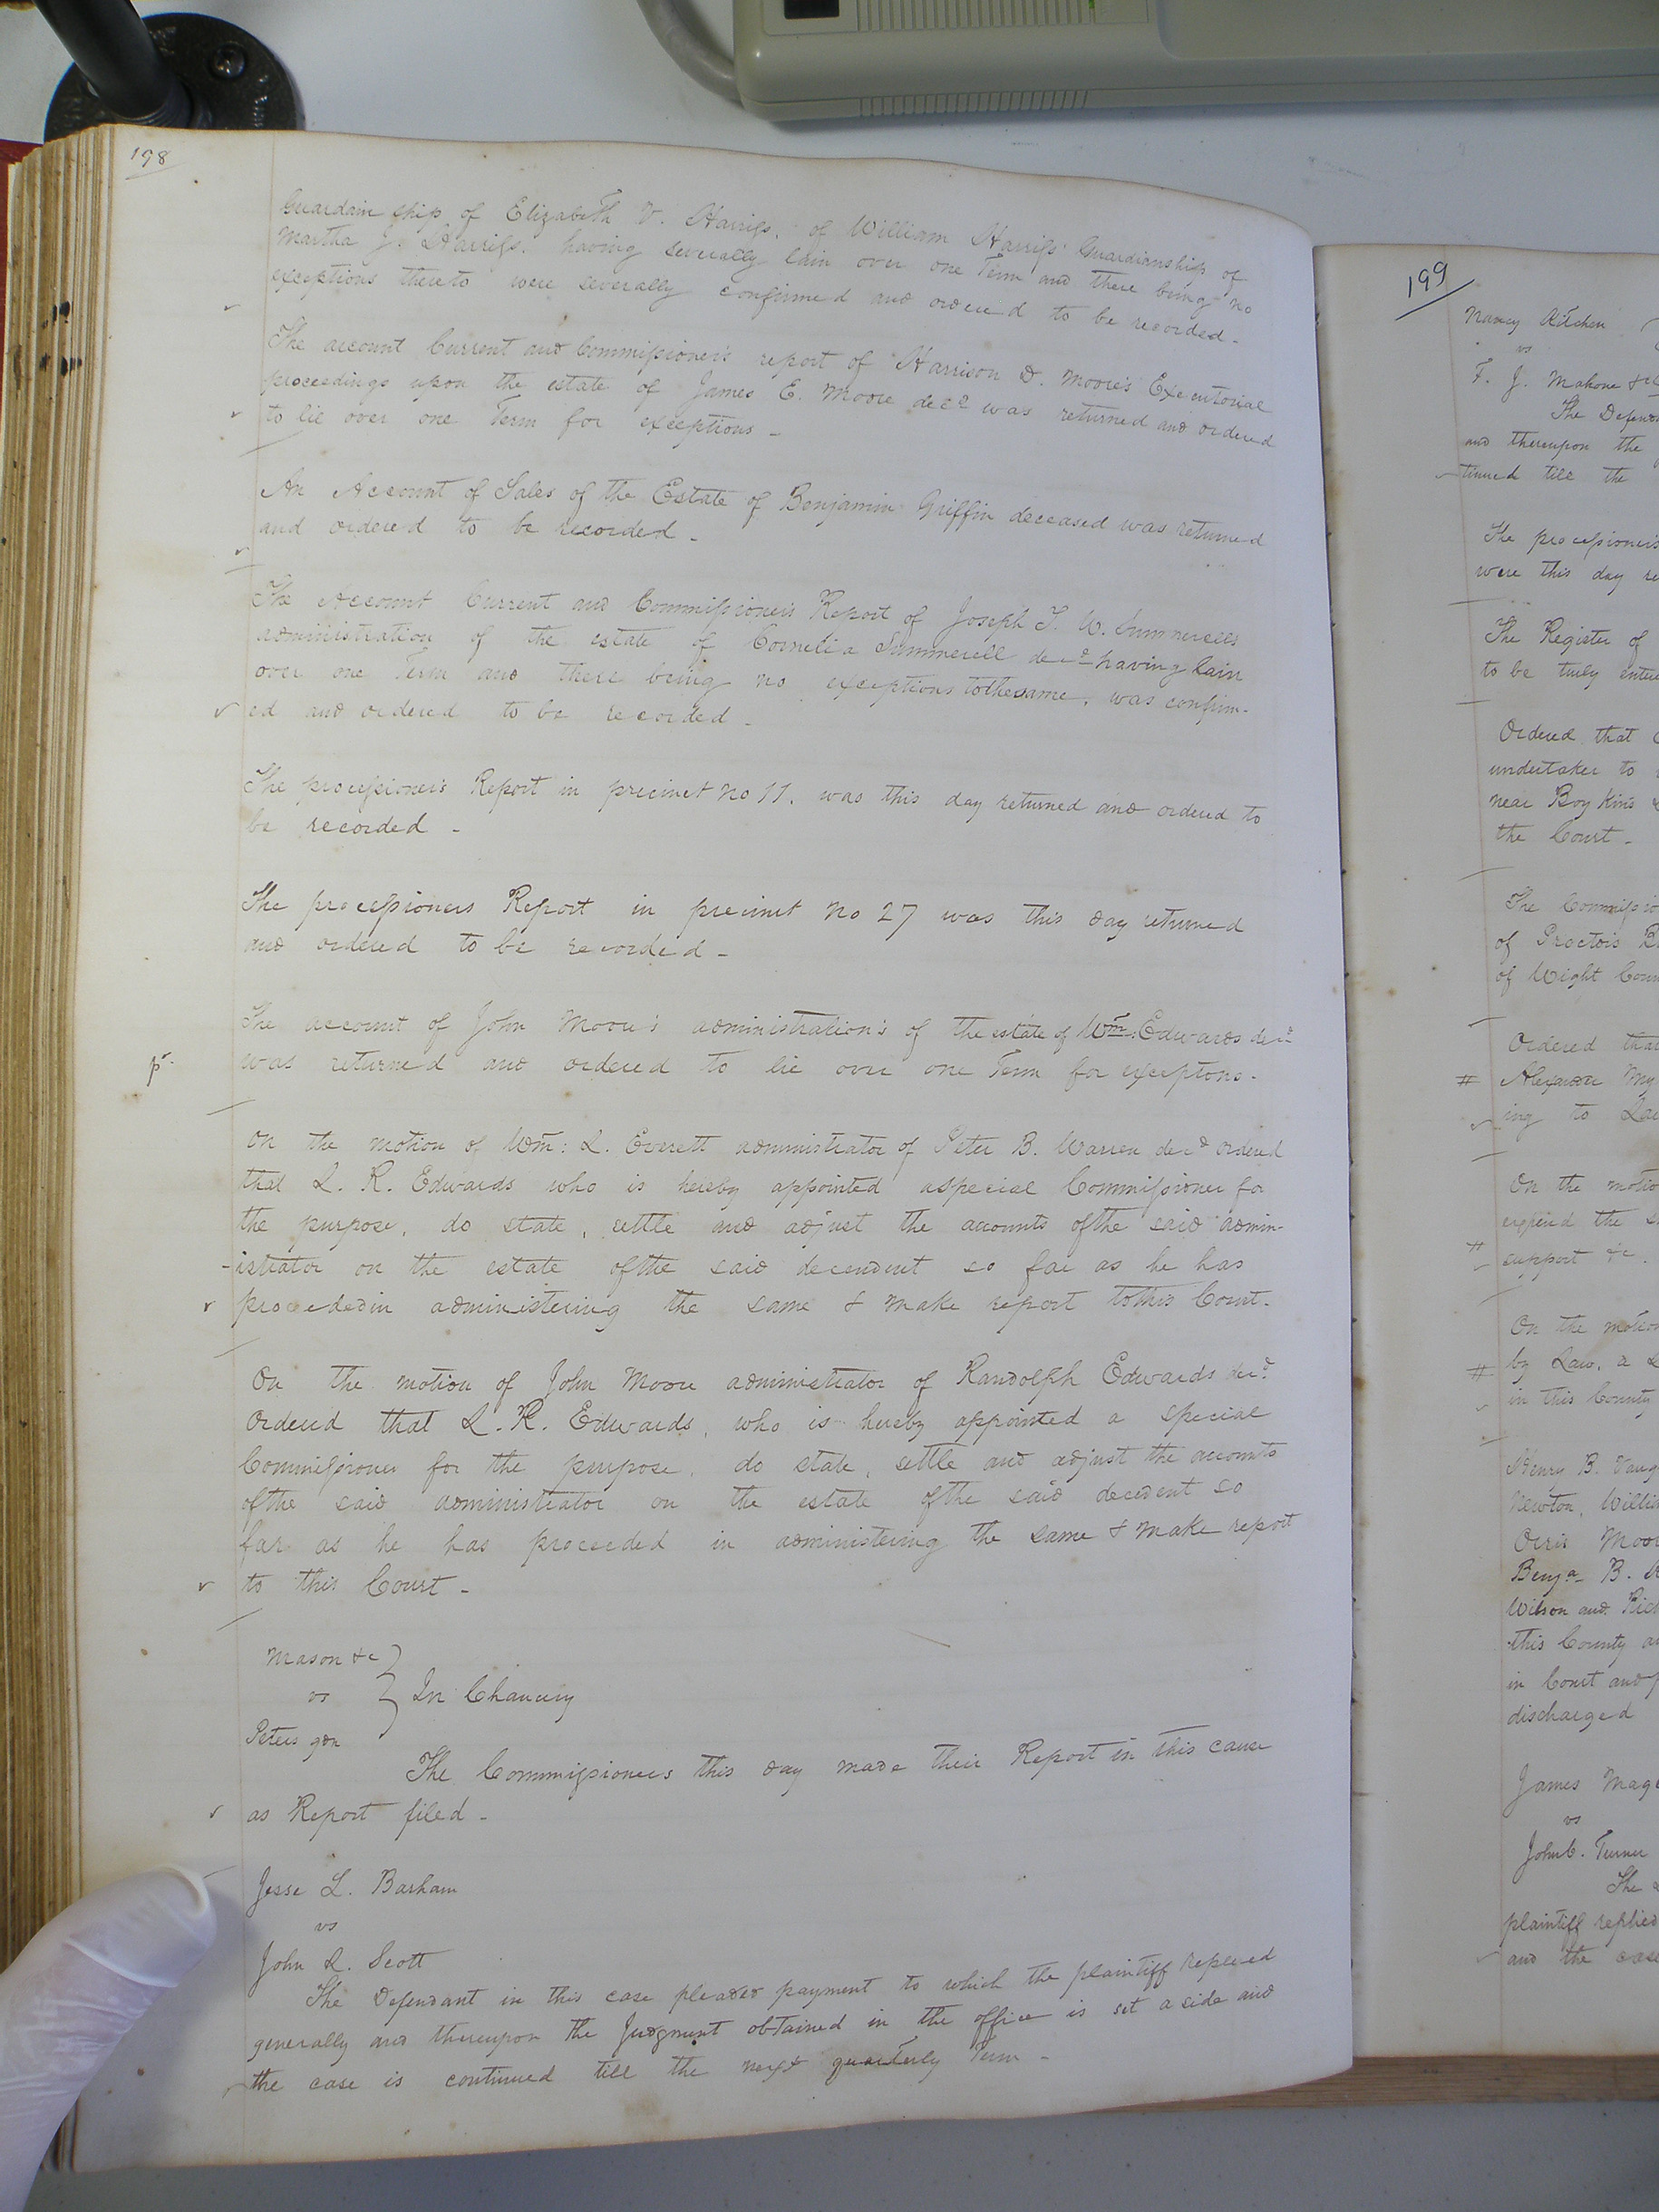 198
Guardain ship of Elizabeth V. Harriss, of William Harriss Guardianship of
Martha J. Harriss, having severally lain over one Term and there being no
exceptions thereto were severally confirmed and ordered to be recorded -
The account Current and Commissioner's report of Harrison D. Moore's Executorial
proceedings upon the estate of James E. Moore decd was returned and ordered
to lie over one Term for exceptions -
An Account of Sales of the Estate of Benjamin Griffin deceased was returned
and ordered to be recorded -
The Account Current and Commissioners Report of Joseph T. W. Summerells
administration of the estate of Cornelia Summerell decd having lain
over one Term and there being no exceptions to the same, was confirm-
ed and ordered to be recorded -
The processioner's Report in precinct no 11, was this day returned and ordered to
be recorded -
The processioners Report in precinct no 27 was this day returned
and ordered to be recorded -
The account of John Moore's administration's of the estate of Wm: Edwards decd
pr. was returned and ordered to lie over one Term for exceptons -
On the motion of Wm: L. Everett administrator of Peter B. Warren decd ordered
that L. R. Edwards who is hereby appointed a special Commissioner for
the purpose, do state, settle and adjust the accounts of the said admin-
-istrator on the estate of the said decendent so far as he has
proceded in administering the same & make report to this Court -
On the motion of John Moore administrator of Randolph Edwards decd
Ordered that L. R. Edwards, who is hereby appointed a special
Commissioner for the purpose, do state, settle and adjust the accounts
of the said administrator on the estate of the said decedent so
far as he has proceeded in administering the same & make report
to this Court -
Mason &c
vs } In Chancery
Peters gdn
The Commmissioners this day made their Report in this cause
as Report filed -
Jesse L. Barham
vs
John R. Scott
The Defendant in this case pleaded payment to which the plaintiff replied
generally and thereupon the Judgment obtained in the office is set aside and
the case is continued till the next quarterly Term -
199
Nancy Kitchen
vs
F. J. Mahone &c
The Defend
and thereupon the
tinued till the
The processioner's
were this day re
The Register of
to be truly ente
Ordered that
undertaker to
near Boykin's
the Court -
The Commissio
of Proctors B
of Wight Coun
Ordered that
# Alexander My
ing to Law
On the motio
expend the s
# support &c.
On the motion
# by Law, a
in this County
Henry B. Vaug
Newton, Willia
Orris Moor
Benja B.
Wilson and Rich
this County a
in Court and
discharged
James Mage
vs
John C. Turner
The
plaintiff replied
and the case